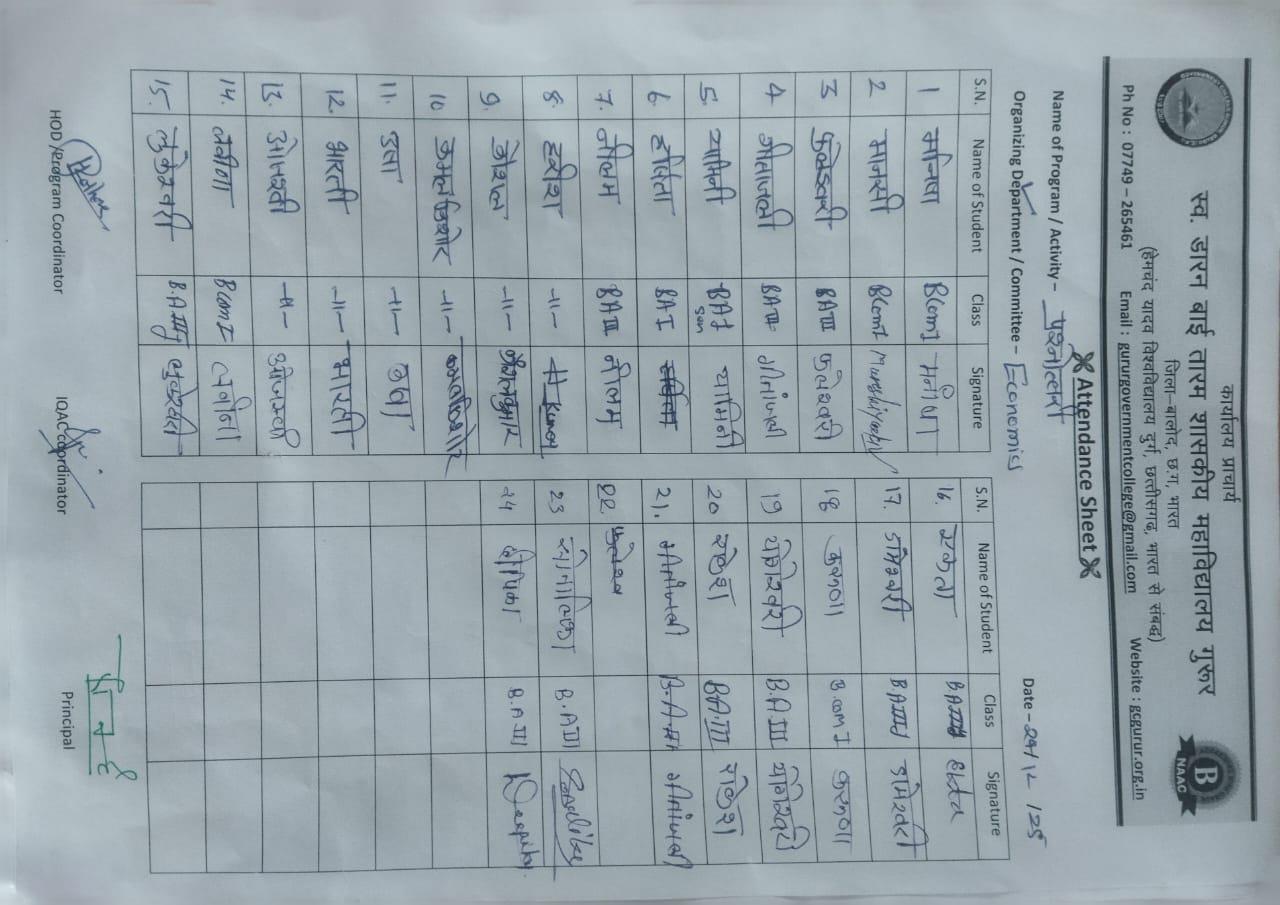 कार्यालय प्राचार्य
स्व. डारन बाई तारम शासकीय महाविद्यालय गुरूर
जिला–बालोद, छ.ग. भारत
(हेमचंद यादव विश्वविद्यालय दुर्ग, छत्तीसगढ़, भारत से संबद्ध)
Ph No : 07749 – 265461 Email : gururgovernmentcollege@gmail.com Website : gcgurur.org.in
B
NAAC
Attendance Sheet
Name of Program / Activity – प्रश्नोत्तरी
Date – 29/12/25
Organizing Department / Committee – Economics
S.N. Name of Student Class Signature
1 मनिषा BCom I मनिषा
2 मानसी BCom I
3 फुलेश्वरी BA III फुलेश्वरी
4 गीतांजली BA III गीतांजली
5. यामिनी BA I Sem यामिनी
6. ललिता BA I ललिता
7. नीलम BA III नीलम
8. हरीश –11– H Kumar
9. –11–
10. कमलकिशोर –11– कमलकिशोर
11. –11–
12. भारती –11– भारती
13. ओमश्री –11– ओमश्री
14. नवीना BCom I नवीना
15. लुकेश्वरी B.A III लुकेश्वरी
S.N. Name of Student Class Signature
16. एकता BA III Ekta
17. डोमेश्वरी BA III डोमेश्वरी
18 करूणा B.Com I करूणा
19 योगेश्वरी B.A III योगेश्वरी
20 राकेश BA.III राकेश
21. गीतांजली B.A. III गीतांजली
22.
23 B.A III
24 दीपिका B.A III Deepika
HOD /Program Coordinator
IQAC coordinator
Principal